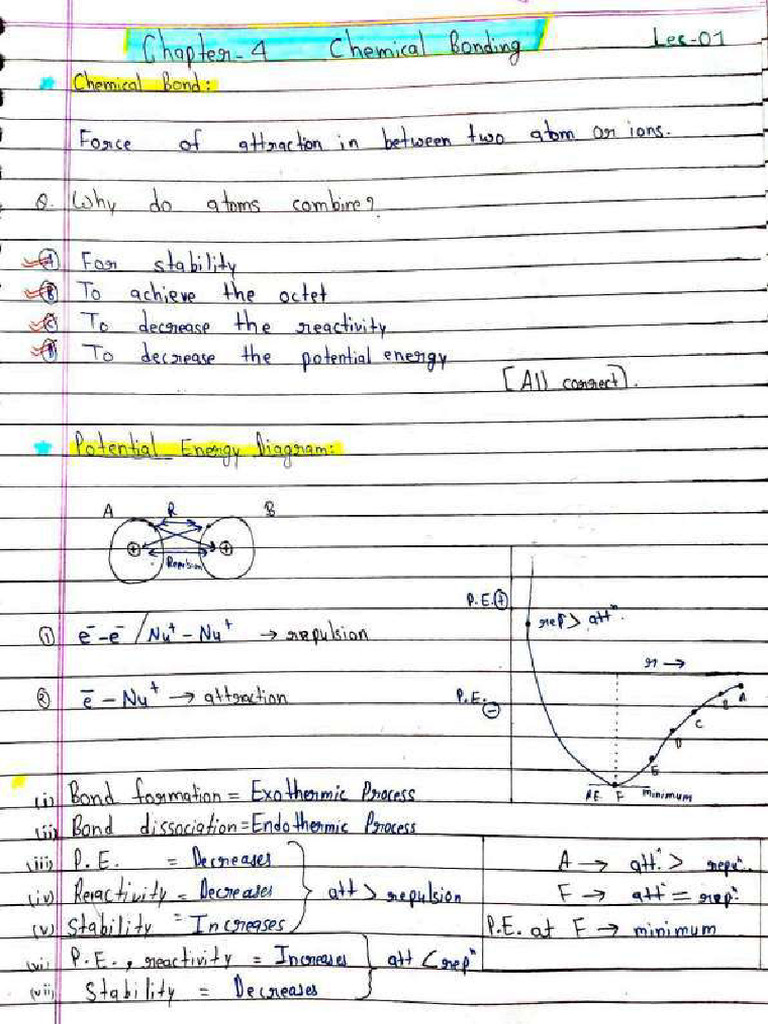 Chapter-4 Chemical Bonding Lec-01
Chemical Bond:
Force of attraction in between two atom or ions.
Q. Why do atoms combine?
(A) For stability
(B) To achieve the octet
(C) To decrease the reactivity
(D) To decrease the potential energy
[All correct].
Potential Energy Diagram:
A R B
⊕ ⊕
Repulsion
P.E. ⊕
rep > attⁿ.
① e⁻-e⁻ / Nu⁺ - Nu⁺ → repulsion
r →
② e⁻ - Nu⁺ → attraction
P.E. ⊖
A
B
C
D
E
P.E. F minimum
(i) Bond formation = Exothermic Process
(ii) Bond dissociation = Endothermic Process
(iii) P.E. = Decreases
(iv) Reactivity = Decreases att > repulsion
(v) Stability = Increases
A → attⁿ > repuⁿ.
F → attⁿ = repⁿ.
P.E. at F → minimum
(vi) P.E., reactivity = Increases att < repⁿ
(vii) Stability = Decreases